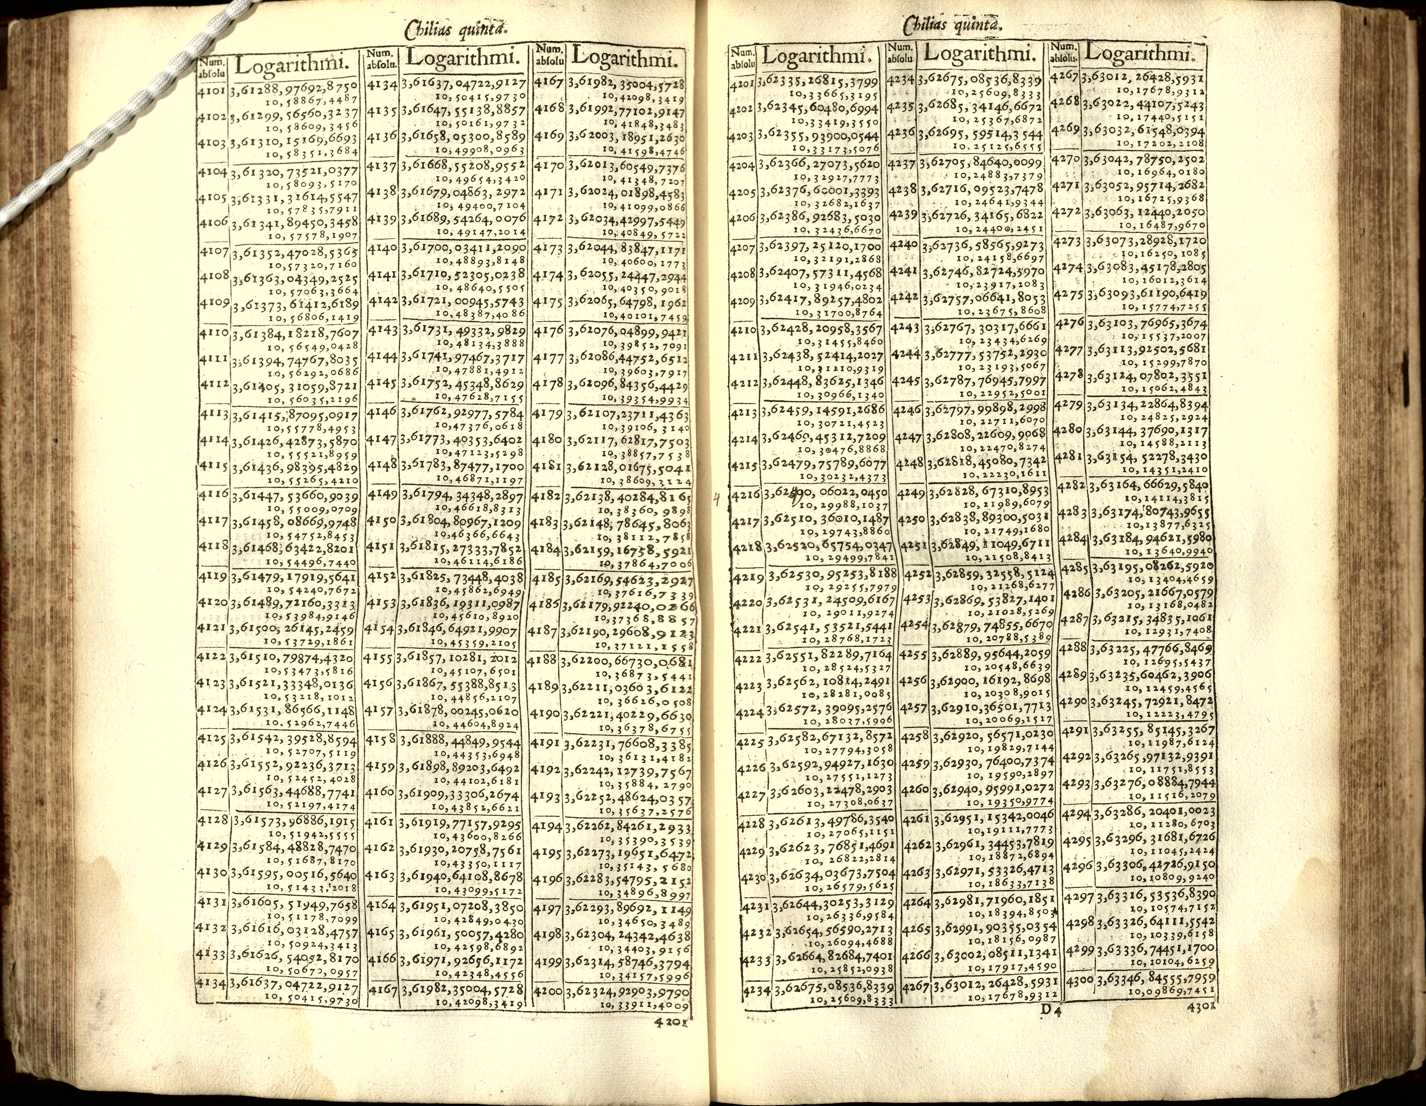 Chilias quinta.
Num. absolu Logarithmi.
4101 3,61288,97692,8750
10,58867,4487
4102 3,61299,56560,3237
10,58609,3456
4103 3,61310,15169,6693
10,58351,3684
4104 3,61320,73521,0377
10,58093,5170
4105 3,61331,31614,5547
10,57835,7911
4106 3,61341,89450,3458
10,57578,1907
4107 3,61352,47028,5365
10,57320,7160
4108 3,61363,04349,2525
10,57063,3664
4109 3,61373,61412,6189
10,56806,1419
4110 3,61384,18218,7607
10,56549,0428
4111 3,61394,74767,8035
10,56292,0686
4112 3,61405,31059,8721
10,56035,2196
4113 3,61415,87095,0917
10,55778,4953
4114 3,61426,42873,5870
10,55521,8959
4115 3,61436,98395,4829
10,55265,4210
4116 3,61447,53660,9039
10,55009,0709
4117 3,61458,08669,9748
10,54752,8453
4118 3,61468,63422,8201
10,54496,7440
4119 3,61479,17919,5641
10,54240,7672
4120 3,61489,72160,3313
10,53984,9146
4121 3,61500,26145,2459
10,53729,1861
4122 3,61510,79874,4320
10,53473,5816
4123 3,61521,33348,0136
10,53218,1012
4124 3,61531,86566,1148
10,52962,7446
4125 3,61542,39528,8594
10,52707,5119
4126 3,61552,92236,3713
10,52452,4028
4127 3,61563,44688,7741
10,52197,4174
4128 3,61573,96886,1915
10,51942,5555
4129 3,61584,48828,7470
10,51687,8170
4130 3,61595,00516,5640
10,51433,2018
4131 3,61605,51949,7658
10,51178,7099
4132 3,61616,03128,4757
10,50924,3413
4133 3,61626,54052,8170
10,50670,0957
4134 3,61637,04722,9127
10,50415,9730
Num. absolu. Logarithmi.
4134 3,61637,04722,9127
10,50415,9730
4135 3,61647,55138,8857
10,50161,9732
4136 3,61658,05300,8589
10,49908,0963
4137 3,61668,55208,9552
10,49654,3420
4138 3,61679,04863,2972
10,49400,7104
4139 3,61689,54264,0076
10,49147,2014
4140 3,61700,03411,2090
10,48893,8148
4141 3,61710,52305,0238
10,48640,5505
4142 3,61721,00945,5743
10,48387,4086
4143 3,61731,49332,9829
10,48134,3888
4144 3,61741,97467,3717
10,47881,4912
4145 3,61752,45348,8629
10,47628,7155
4146 3,61762,92977,5784
10,47376,0618
4147 3,61773,40353,6402
10,47123,5298
4148 3,61783,87477,1700
10,46871,1197
4149 3,61794,34348,2897
10,46618,8313
4150 3,61804,80967,1209
10,46366,6643
4151 3,61815,27333,7852
10,46114,6186
4152 3,61825,73448,4038
10,45862,6949
4153 3,61836,19311,0987
10,45610,8920
4154 3,61846,64921,9907
10,45359,2105
4155 3,61857,10281,2012
10,45107,6501
4156 3,61867,55388,8513
10,44856,2107
4157 3,61878,00245,0620
10,44604,8924
4158 3,61888,44849,9544
10,44353,6948
4159 3,61898,89203,6492
10,44102,6181
4160 3,61909,33306,2674
10,43852,6621
4161 3,61919,77157,9295
10,43600,8266
4162 3,61930,20758,7561
10,43350,1117
4163 3,61940,64108,8678
10,43099,5172
4164 3,61951,07208,3850
10,42849,0430
4165 3,61961,50057,4280
10,42598,6892
4166 3,61971,92656,1172
10,42348,4556
4167 3,61982,35004,5728
10,42098,3419
Num. absolu Logarithmi.
4167 3,61982,35004,5728
10,42098,3419
4168 3,61992,77102,9147
10,41848,3483
4169 3,62003,18951,2630
10,41598,4746
4170 3,62013,60549,7376
10,41348,7207
4171 3,62024,01898,4583
10,41099,0866
4172 3,62034,42997,5449
10,40849,5722
4173 3,62044,83847,1171
10,40600,1773
4174 3,62055,24447,2944
10,40350,9018
4175 3,62065,64798,1962
10,40101,7459
4176 3,62076,04899,9421
10,39852,7091
4177 3,62086,44752,6512
10,39603,7917
4178 3,62096,84356,4429
10,39354,9934
4179 3,62107,23711,4363
10,39106,3140
4180 3,62117,62817,7503
10,38857,7538
4181 3,62128,01675,5041
10,38609,3124
4182 3,62138,40284,8165
10,38360,9898
4183 3,62148,78645,8063
10,38112,7858
4184 3,62159,16758,5921
10,37864,7006
4185 3,62169,54623,2927
10,37616,7339
4186 3,62179,92240,0266
10,37368,8857
4187 3,62190,29608,9123
10,37121,1558
4188 3,62200,66730,0681
10,36873,5441
4189 3,62211,03603,6122
10,36626,0508
4190 3,62221,40229,6630
10,36378,6755
4191 3,62231,76608,3385
10,36131,4182
4192 3,62242,12739,7567
10,35884,2790
4193 3,62252,48624,0357
10,35637,2576
4194 3,62262,84261,2933
10,35390,3539
4195 3,62273,19651,6472
10,35143,5680
4196 3,62283,54795,2152
10,34896,8997
4197 3,62293,89692,1149
10,34650,3489
4198 3,62304,24342,4638
10,34403,9156
4199 3,62314,58746,3794
10,34157,5996
4200 3,62324,92903,9790
10,33911,4009
4201
Chilias quinta.
Num. absolu Logarithmi.
4201 3,62335,26815,3799
10,33665,3195
4202 3,62345,60480,6994
10,33419,3550
4203 3,62355,93900,0544
10,33173,5076
4204 3,62366,27073,5620
10,32927,7773
4205 3,62376,60001,3393
10,32682,1637
4206 3,62386,92683,5030
10,32436,6670
4207 3,62397,25120,1700
10,32191,2868
4208 3,62407,57311,4568
10,31946,0234
4209 3,62417,89257,4802
10,31700,8764
4210 3,62428,20958,3567
10,31455,8460
4211 3,62438,52414,2027
10,31210,9319
4212 3,62448,83625,1346
10,30966,1340
4213 3,62459,14591,2686
10,30721,4523
4214 3,62469,45312,7209
10,30476,8868
4215 3,62479,75789,6077
10,30232,4373
4216 3,62490,06022,0450
10,29988,1037
4217 3,62510,36010,1487
10,29743,8860
4218 3,62520,65754,0347
10,29499,7841
4219 3,62530,95253,8188
10,29255,7979
4220 3,62531,24509,6167
10,29011,9274
4221 3,62541,53521,5441
10,28768,1723
4222 3,62551,82289,7164
10,28524,5327
4223 3,62562,10814,2491
10,28281,0085
4224 3,62572,39095,2576
10,28037,5996
4225 3,62582,67132,8572
10,27794,3058
4226 3,62592,94927,1630
10,27551,1273
4227 3,62603,22478,2903
10,27308,0637
4228 3,62613,49786,3540
10,27065,1151
4229 3,62623,76851,4691
10,26822,2814
4230 3,62634,03673,7504
10,26579,5625
4231 3,62644,30253,3129
10,26336,9584
4232 3,62654,56590,2713
10,26094,4688
4233 3,62664,82684,7401
10,25852,0938
4234 3,62675,08536,8339
10,25609,8333
Num. absolu Logarithmi.
4234 3,62675,08536,8339
10,25609,8333
4235 3,62685,34146,6672
10,25367,6872
4236 3,62695,59514,3544
10,25125,6555
4237 3,62705,84640,0099
10,24883,7379
4238 3,62716,09523,7478
10,24641,9344
4239 3,62726,34165,6822
10,24400,2451
4240 3,62736,58565,9273
10,24158,6697
4241 3,62746,82724,5970
10,23917,2083
4242 3,62757,06641,8053
10,23675,8608
4243 3,62767,30317,6661
10,23434,6269
4244 3,62777,53752,2930
10,23193,5067
4245 3,62787,76945,7997
10,22952,5001
4246 3,62797,99898,2998
10,22711,6070
4247 3,62808,22609,9068
10,22470,8274
4248 3,62818,45080,7342
10,22230,1611
4249 3,62828,67310,8953
10,21989,6079
4250 3,62838,89300,5031
10,21749,1680
4251 3,62849,11049,6711
10,21508,8413
4252 3,62859,32558,5124
10,21268,6277
4253 3,62869,53827,1401
10,21028,5269
4254 3,62879,74855,6670
10,20788,5389
4255 3,62889,95644,2059
10,20548,6639
4256 3,62900,16192,8698
10,20308,9015
4257 3,62910,36501,7713
10,20069,1517
4258 3,62920,56571,0230
10,19829,7144
4259 3,62930,76400,7374
10,19590,2897
4260 3,62940,95991,0272
10,19350,9774
4261 3,62951,15342,0046
10,19111,7773
4262 3,62961,34453,7819
10,18872,6894
4263 3,62971,53326,4713
10,18633,7138
4264 3,62981,71960,1851
10,18394,8503
4265 3,62991,90355,0354
10,18156,0987
4266 3,63002,08511,1341
10,17917,4590
4267 3,63012,26428,5931
10,17678,9312
D 4
Num. absolu. Logarithmi.
4267 3,63012,26428,5931
10,17678,9312
4268 3,63022,44107,5243
10,17440,5151
4269 3,63032,61548,0394
10,17202,2108
4270 3,63042,78750,2502
10,16964,0180
4271 3,63052,95714,2682
10,16725,9368
4272 3,63063,12440,2050
10,16487,9670
4273 3,63073,28928,1720
10,16250,1085
4274 3,63083,45178,2805
10,16012,3614
4275 3,63093,61190,6419
10,15774,7255
4276 3,63103,76965,3674
10,15537,2007
4277 3,63113,92502,5681
10,15299,7870
4278 3,63124,07802,3551
10,15062,4843
4279 3,63134,22864,8394
10,24825,2924
4280 3,63144,37690,1317
10,14588,2113
4281 3,63154,52278,3430
10,14351,2410
4282 3,63164,66629,5840
10,14114,3815
4283 3,63174,80743,9655
10,13877,6325
4284 3,63184,94621,5980
10,13640,9940
4285 3,63195,08262,5920
10,13404,4659
4286 3,63205,21667,0579
10,13168,0482
4287 3,63215,34835,1061
10,12931,7408
4288 3,63225,47766,8469
10,12695,5437
4289 3,63235,60462,3906
10,12459,4565
4290 3,63245,72921,8472
10,12223,4795
4291 3,63255,85145,3267
10,11987,6124
4292 3,63265,97132,9391
10,11751,8553
4293 3,63276,08884,7944
10,11516,2079
4294 3,63286,20401,0023
10,11280,6703
4295 3,63296,31681,6726
10,11045,2424
4296 3,63306,42726,9150
10,10809,9240
4297 3,63316,53536,8390
10,10574,7152
4298 3,63326,64111,5542
10,10339,6158
4299 3,63336,74451,1700
10,10104,6259
4300 3,63346,84555,7959
10,09869,7451
4301